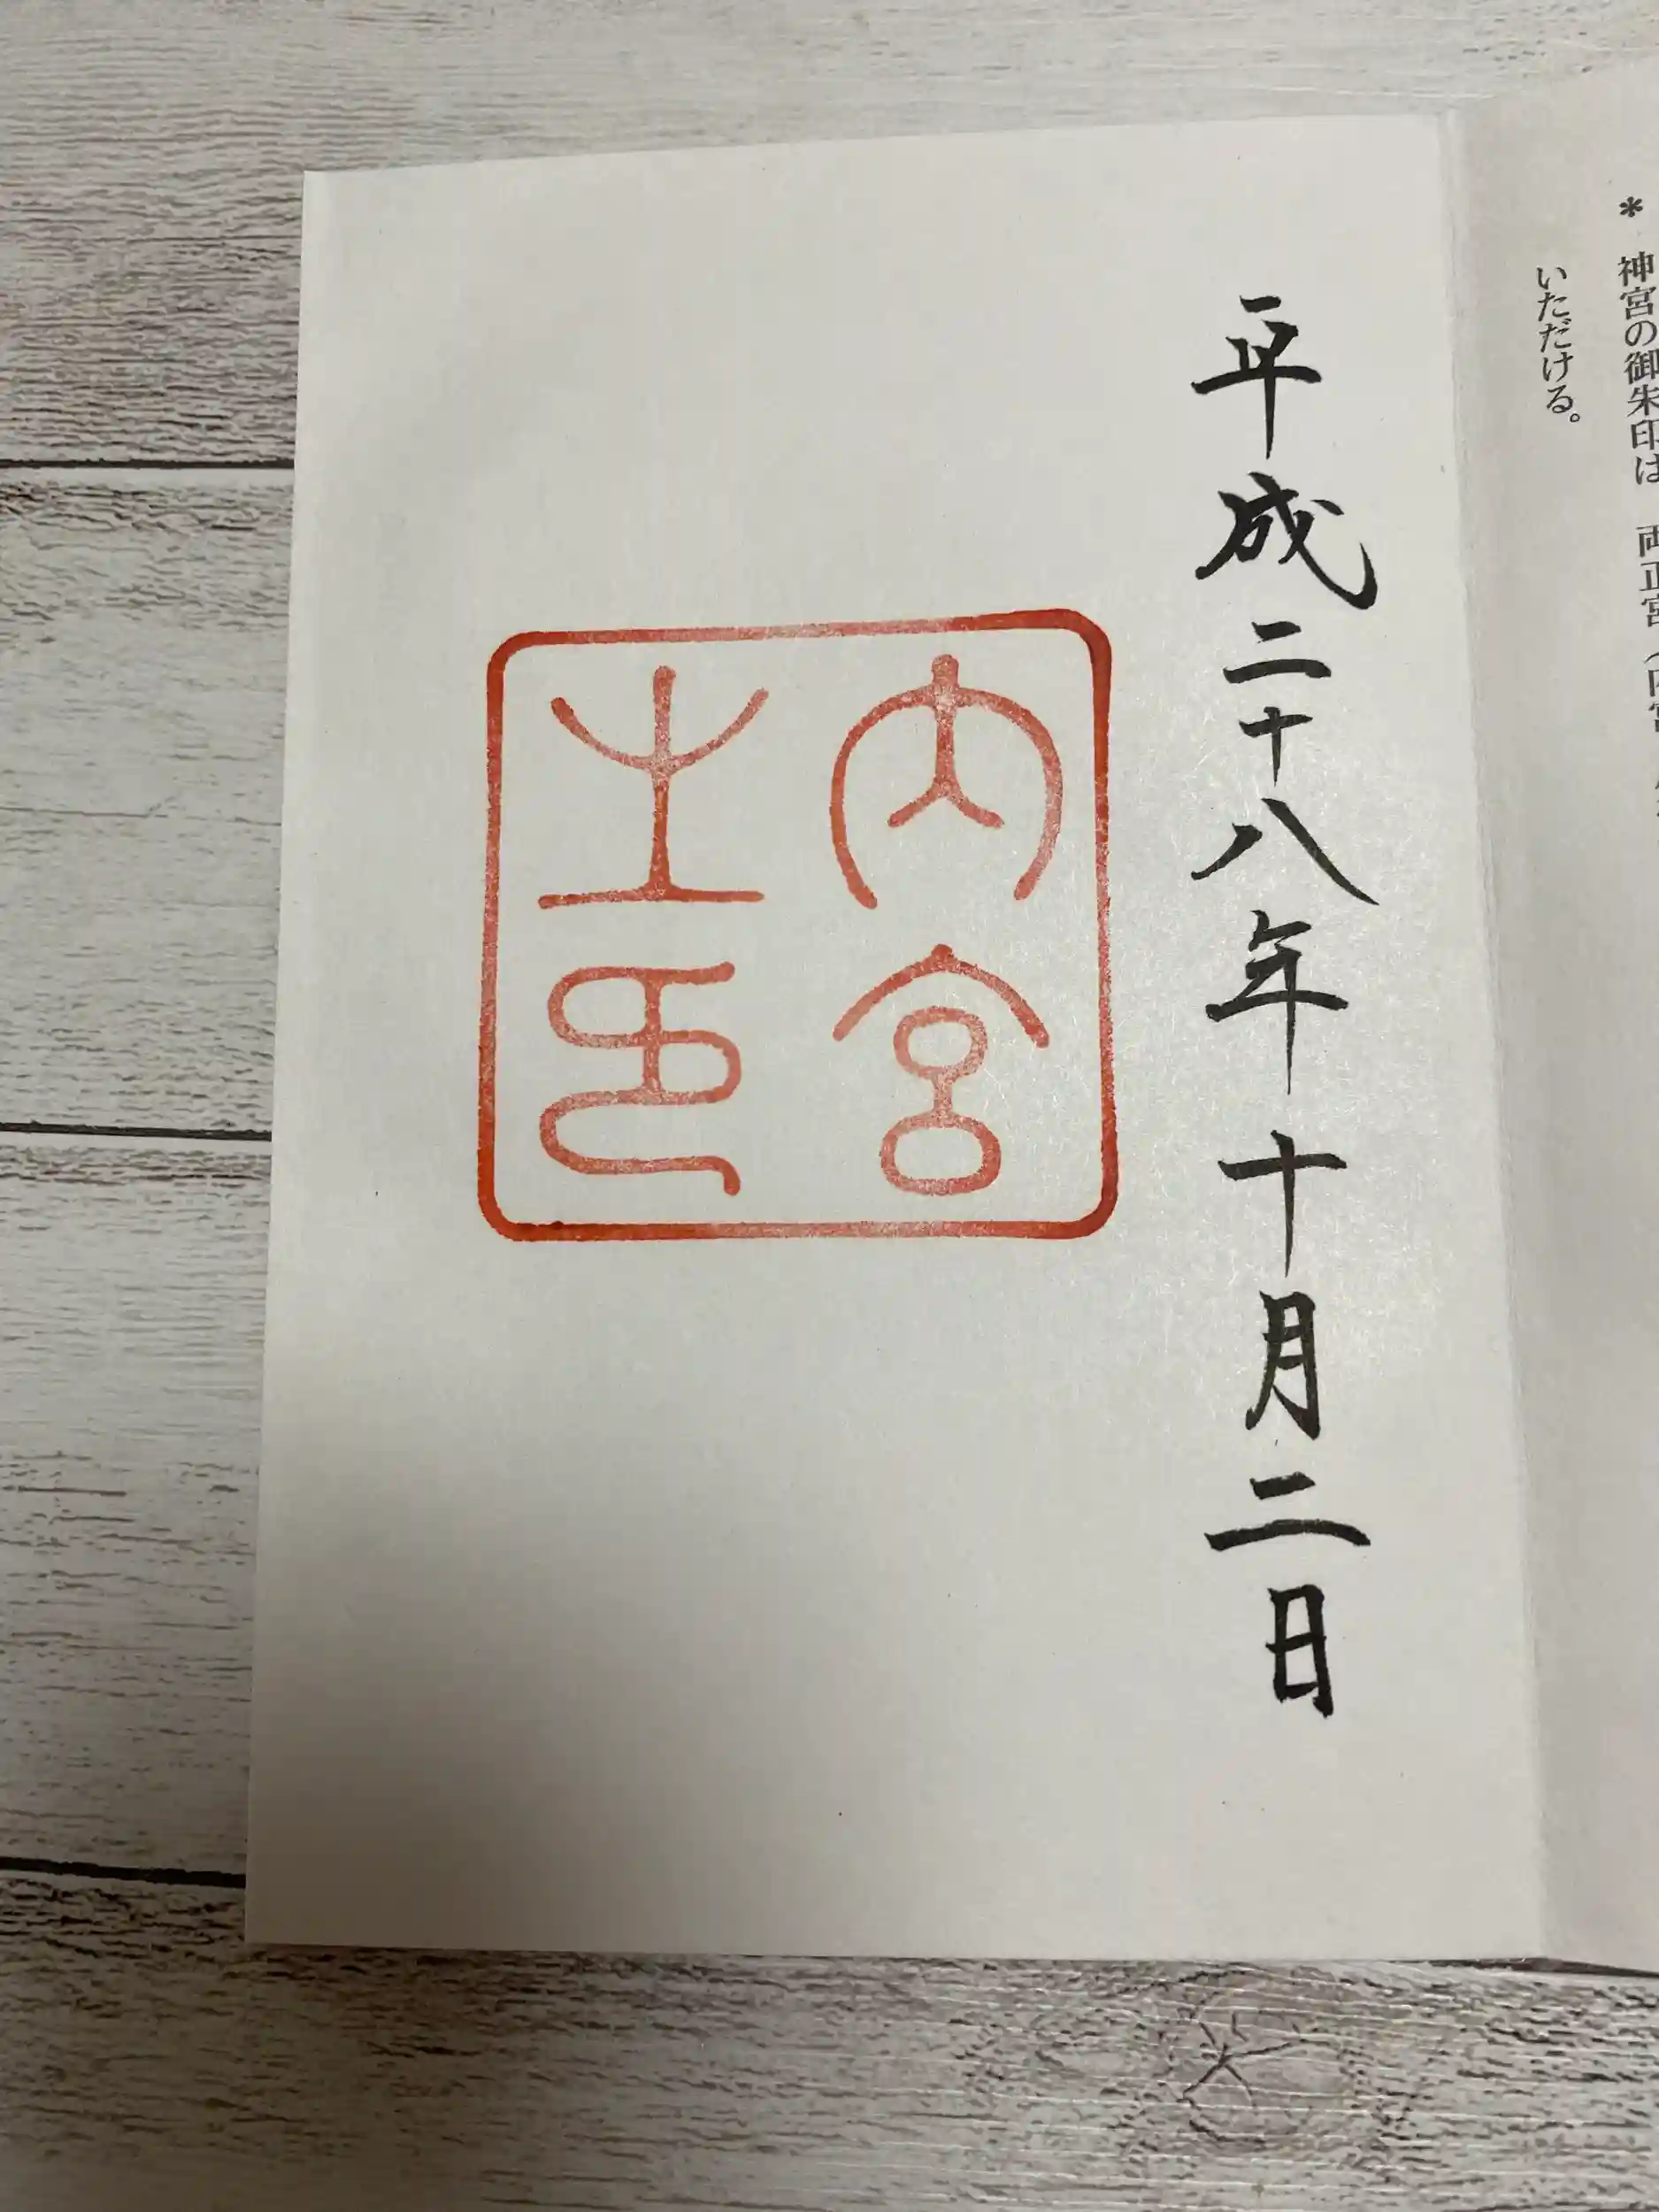 ＊ 神宮の御朱印は 両正宮（内宮
いただける。
平成二十八年十月二日
内宮
之印